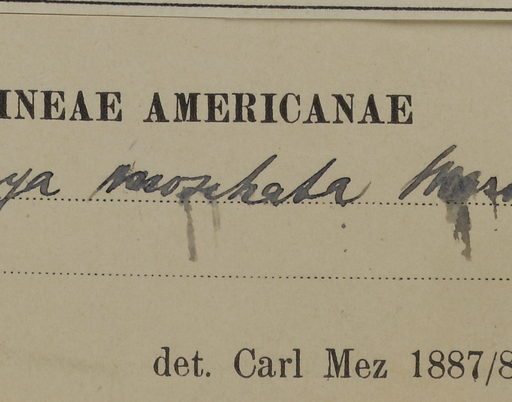 INEAE AMERICANAE
ya moschata
det. Carl Mez 1887/8